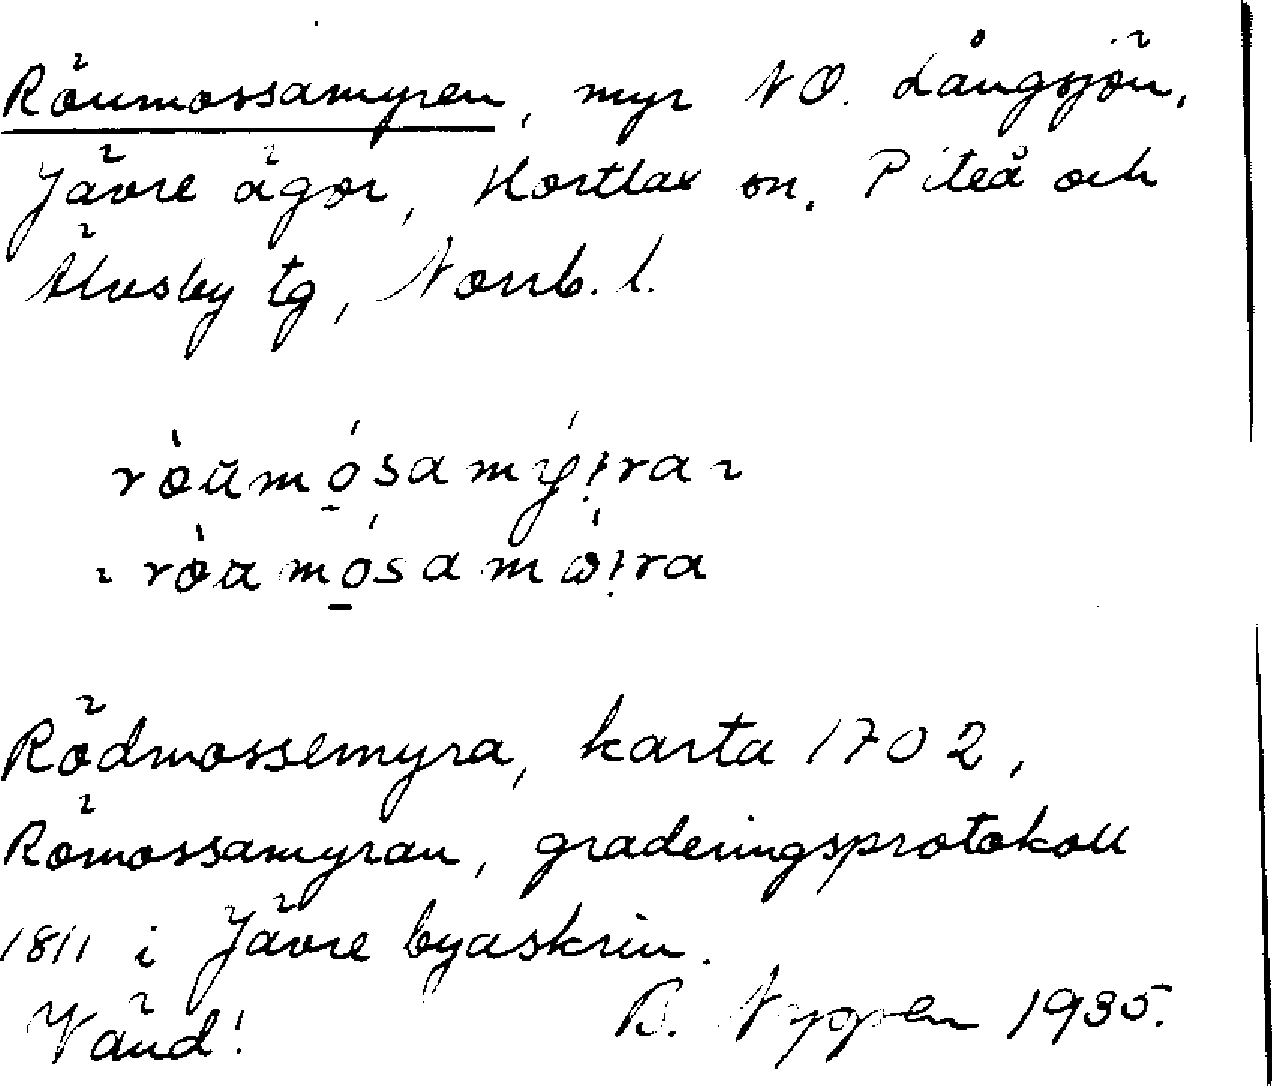 Röumossamyren, myr NO. Långsjön,
Jävre ägor, Hortlax sn. Piteå och
Älvsby tg, Norrb. l.
ròŭmó̠samý!ra ~
~ ròămó̠samẁ!ra
Rödmossemyra, karta 1702,
Römossamyran, graderingsprotokoll
1811 i Jävre byaskrin.
Vänd! B. Nyppen 1935.